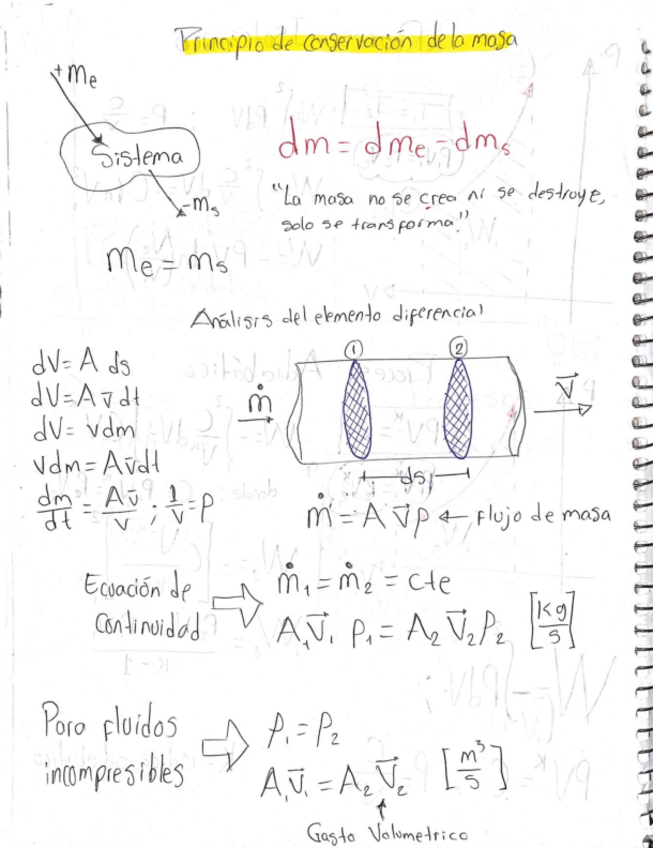 Principio de conservación de la masa
+me
Sistema
-ms
dm = dme - dms
"La masa no se crea ni se destroye,
solo se transforma."
me = ms
Análisis del elemento diferencial
dV= A ds
dV= A v̄ dt
dV= vdm
vdm = A v̄ dt
dm/dt = Av̄/v ; 1/v = ρ
① ②
ṁ
V⃗
ds
ṁ = A v⃗ ρ ← flujo de masa
Ecuación de
Continuidad
ṁ₁ = ṁ₂ = cte
A₁V⃗₁ ρ₁ = A₂ V⃗₂ ρ₂ [Kg/s]
Para fluidos
incompresibles
ρ₁ = ρ₂
A₁V⃗₁ = A₂ V⃗₂ [m³/s]
Gasto Volumetrico